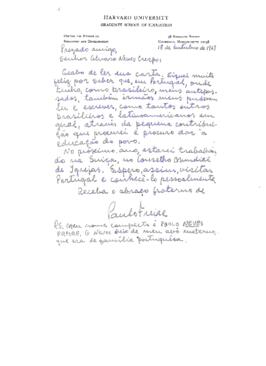 HARVARD UNIVERSITY
GRADUATE SCHOOL OF EDUCATION
Prezado amigo,
Senhor Alvaro Neves Crespo:
Acabo de ler sua carta. Fiquei muito
feliz por saber que, em Portugal, onde
tenho, como brasileiro, meus antepas-
sados, também irmãos meus puderam
ler e escrever, como tantos outros
brasileiros e latinoamericanos em
geral, através da pequena contribui-
ção que procurei e procuro dar à
educação do povo.
No próximo ano, estarei trabalhan
do na Suíça, no Conselho Mundial
de Igrejas. Espero, assim, visitar
Portugal e conhecê-lo pessoalmente
Receba o abraço fraterno de
Paulo Freire
PS. meu nome completo é PAULO NEVES
FREIRE. O Neves veio de meu avô materno
que era de família portuguesa.